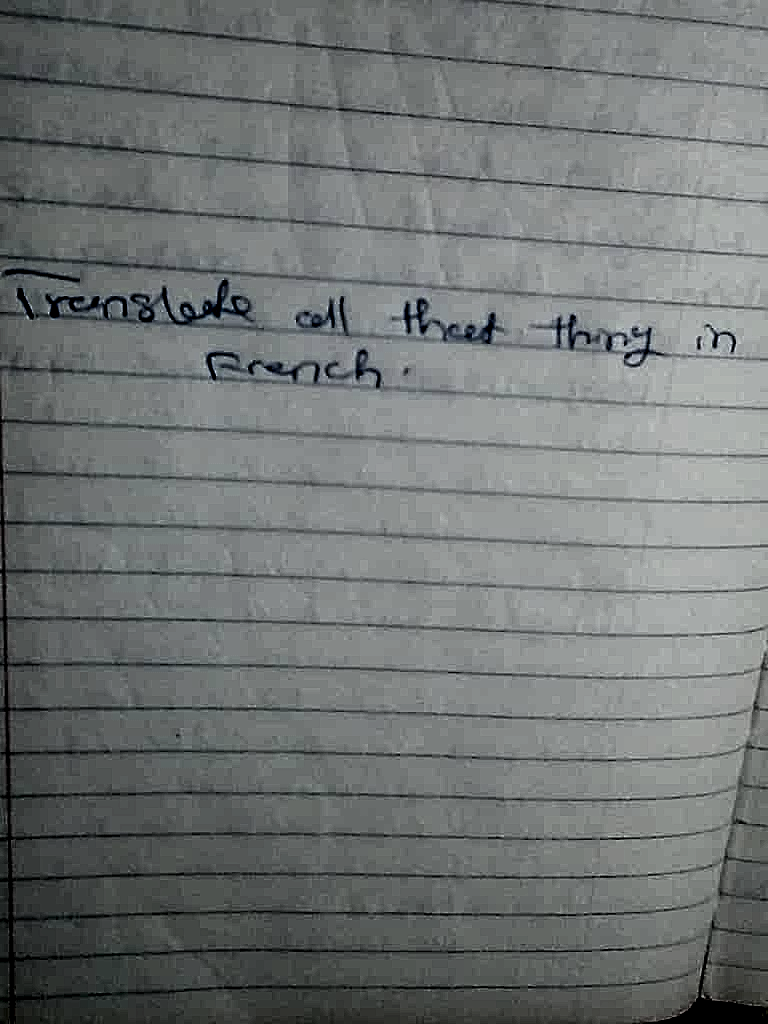 Translate all that thing in
French.